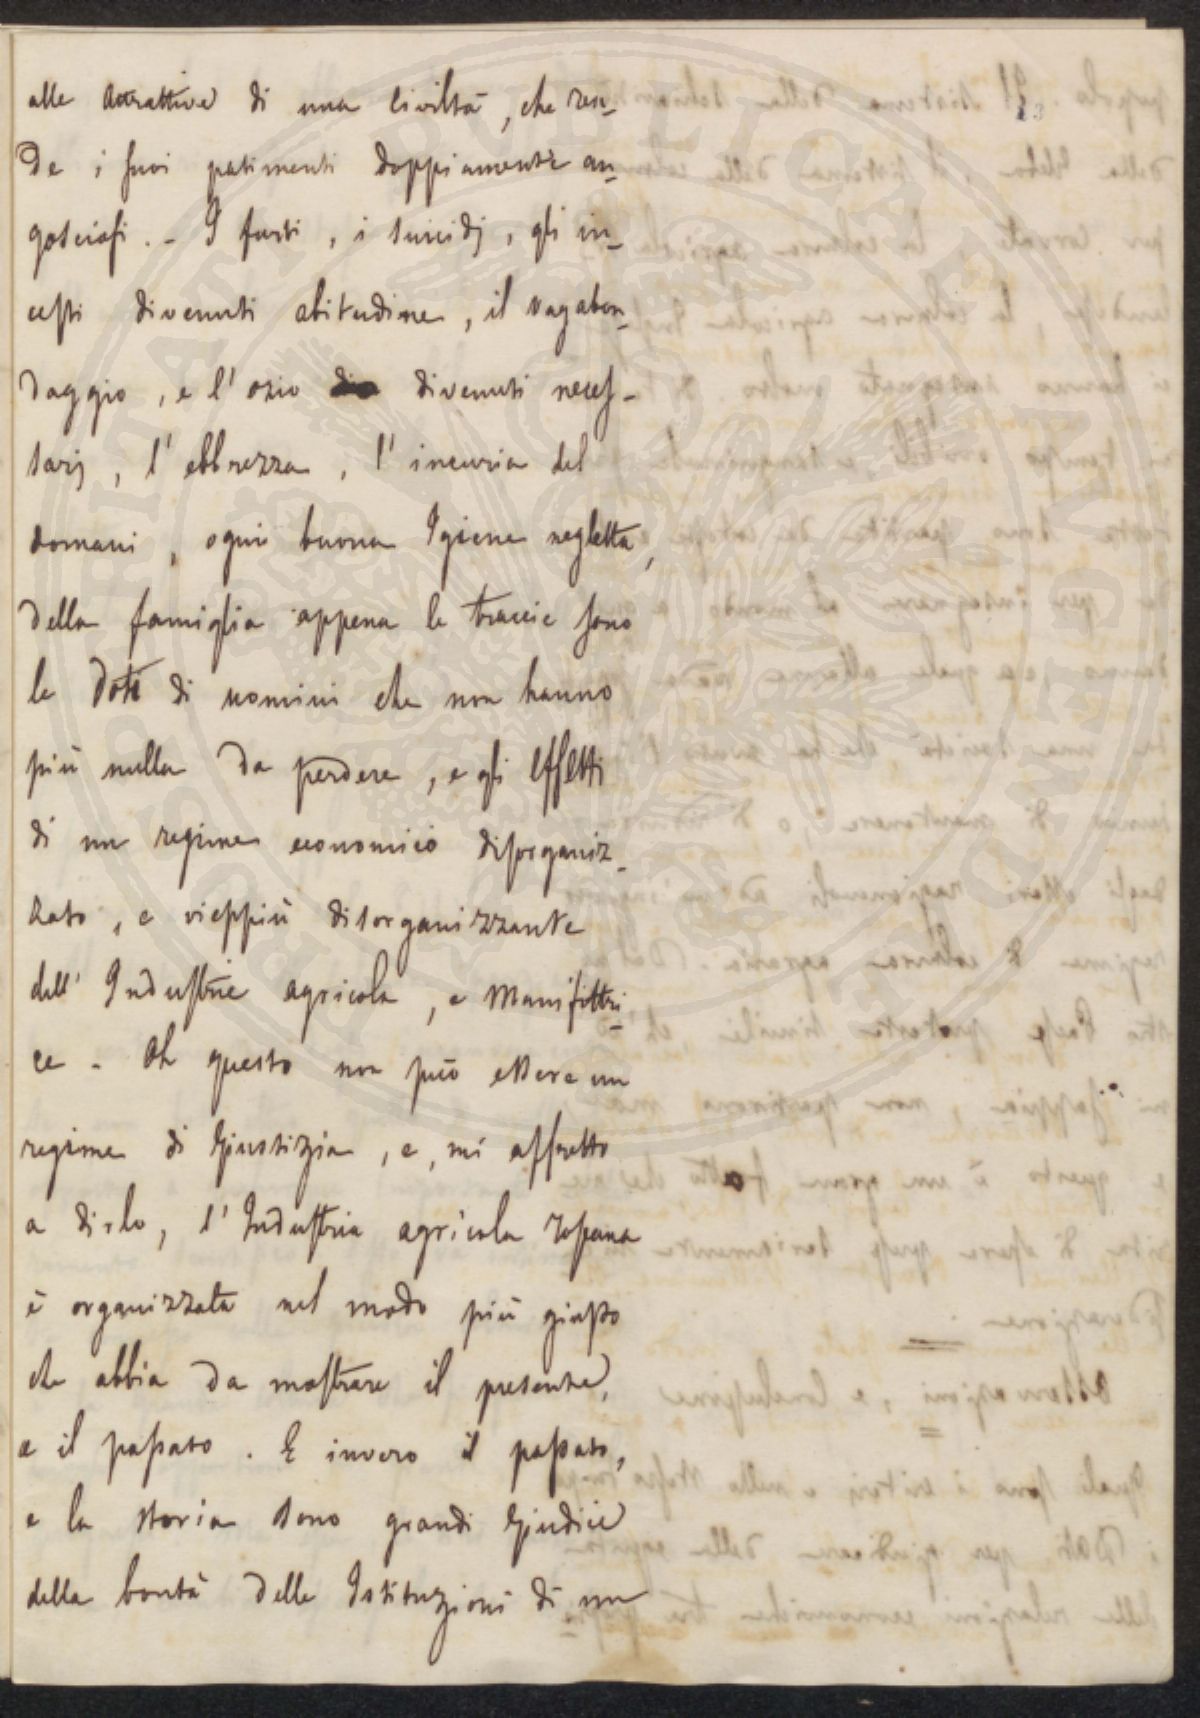 alle attrattive di una Civiltà, che ren-
de i suoi patimenti doppiamente an-
gosciosi. - I furti, i suicidj, gli in-
cesti divenuti abitudine, il vagabon-
daggio, e l'ozio divenuti neces-
sarj, l'ebbrezza, l'incuria del
domani, ogni buona Igiene negletta,
della famiglia appena le traccie sono
le doti di uomini che non hanno
più nulla da perdere, e gli effetti
di un regime economico disorganiz-
zato, e vieppiù disorganizzante
dell'Industrie agricola, e Manifattri-
ce - Ah questo non può essere un
regime di Giustizia, e, mi affretto
a dirlo, l'Industria agricola Tosana
è organizzata nel modo più giusto
che abbia da mostrare il presente,
e il passato. E invero il passato,
e la storia sono grandi Giudici
della bontà delle Istituzioni di un